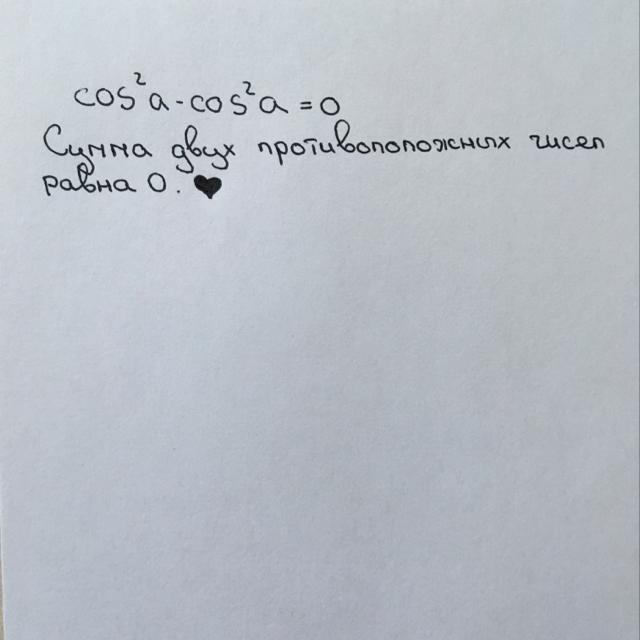 cos²a - cos²a = 0
Сумма двух противоположных чисел
равна 0. ♥